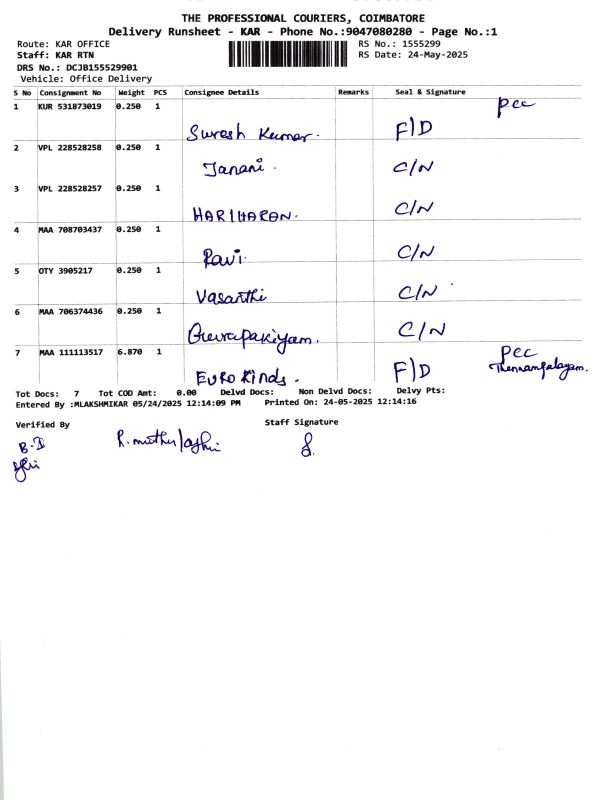 THE PROFESSIONAL COURIERS, COIMBATORE
Delivery Runsheet - KAR - Phone No.:9047080280 - Page No.:1
Route: KAR OFFICE RS No.: 1555299
Staff: KAR RTN RS Date: 24-May-2025
DRS No.: DCJB155529901
Vehicle: Office Delivery
S No Consignment No Weight PCS Consignee Details Remarks Seal & Signature
1 KUR 531873019 0.250 1 Pcc
Suresh Kumar. F/D
2 VPL 228528258 0.250 1
Janani. C/N
3 VPL 228528257 0.250 1
HARIHARAN. C/N
4 MAA 708703437 0.250 1
Ravi. C/N
5 OTY 3905217 0.250 1
Vasanthi C/N
6 MAA 706374436 0.250 1
C/N
7 MAA 111113517 6.870 1 Pcc
Euro Kinds. F/D Thennampalayam.
Tot Docs: 7 Tot COD Amt: 0.00 Delvd Docs: Non Delvd Docs: Delvy Pts:
Entered By :MLAKSHMIKAR 05/24/2025 12:14:09 PM Printed On: 24-05-2025 12:14:16
Verified By Staff Signature